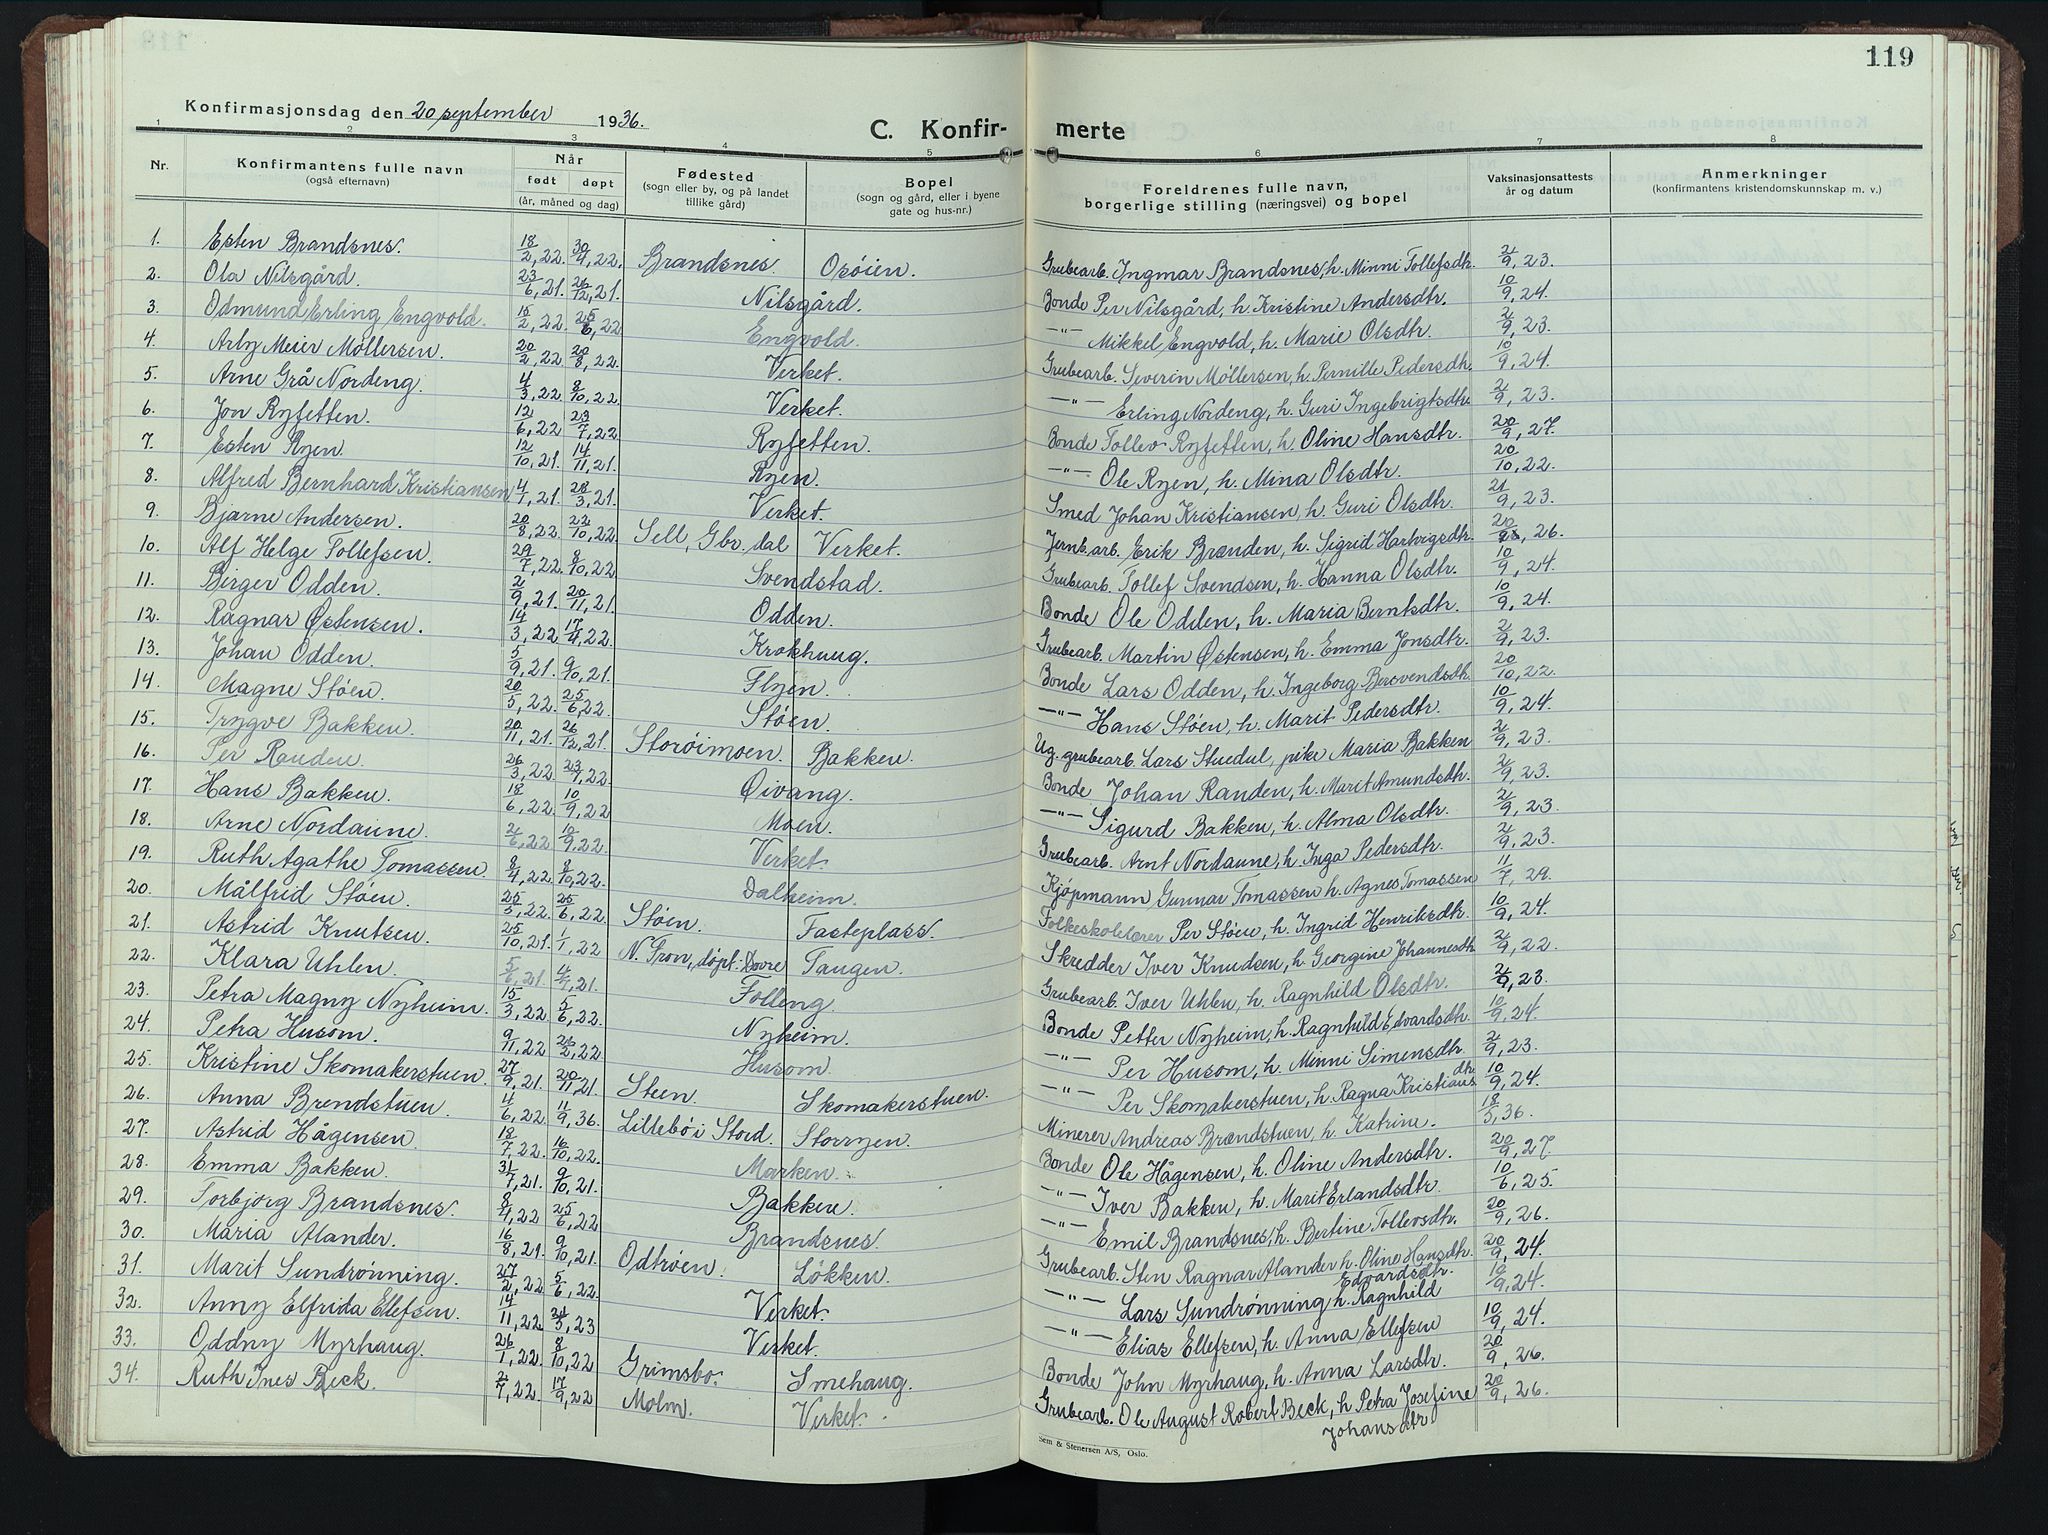 119
Konfirmasjonsdag den 20 september 1936.
C. Konfir- merte
1 2 3 4 5 6 7 8
Nr. Konfirmantens fulle navn (også efternavn) Når født døpt (år, måned og dag) Fødested (sogn eller by, og på landet tillike gård) Bopel (sogn og gård, eller i byene gate og hus-nr.) Foreldrenes fulle navn, borgerlige stilling (næringsvei) og bopel Vaksinasjonsattests år og datum Anmerkninger (konfirmantens kristendomskunnskap m. v.)
1. Esten Brandsnes. 18/2, 22. 30/4, 22. Brandsnes. Osøien. Grubearb. Ingmar Brandsnes, h. Minni Tollefsdtr. 2/9, 23.
2. Ola Nilsgård. 23/6, 21. 26/12, 21. Nilsgård. Bonde Per Nilsgård, h. Kristine Andersdtr. 10/9, 24.
3. Odmund Erling Engvold. 15/2, 22. 25/6, 22 Engvold. —"— Mikkel Engvold, h. Marie Olsdtr. 2/9, 23.
4. Arby Meier Møllersen. 20/2, 22. 20/8, 22. Verket. Grubearb. Severin Møllersen, h. Pernille Pedersdtr. 10/9, 24.
5. Arne Grå Nordeng. 4/3, 22. 8/10, 22. Verket. —"— Erling Nordeng, h. Guri Ingebrigtsdtr. 2/9, 23.
6. Jon Ryfetten. 12/6, 22 23/7, 22 Ryfetten. Bonde Tollev Ryfetten, h. Oline Hansdtr. 20/9, 27.
7. Esten Ryen. 12/10, 21. 14/11, 21. Ryen. —"— Ole Ryen, h. Mina Olsdtr. 20/10, 22.
8. Alfred Bernhard Kristiansen 4/1, 21. 28/3, 21. Verket. Smed Johan Kristiansen, h. Guri Olsdtr. 21/9, 23.
9. Bjarne Andersen. 20/8, 22. 22/10, 22. Sell, Gbr. dal Verket. Jernb. arb. Erik Brænden, h. Sigrid Hartvigsdtr. 26.
10. Alf Helge Tollefsen. 29/7, 22. 8/10, 22 Svendstad. Grubearb. Tollef Svendsen, h. Hanna Olsdtr. 10/9, 24.
11. Birger Odden. 2/9, 21. 20/11, 21. Odden. Bonde Ole Odden, h. Maria Berntsdtr. 10/9, 24.
12. Ragnar Østensen. 14/3, 22 17/4, 22. Krokhaug. Grubearb. Martin Østensen, h. Emma Jonsdtr. 2/9, 23.
13. Johan Odden. 5/9, 21. 9/10, 21. Flyen. Bonde Lars Odden, h. Ingeborg Bersvendsdtr. 20/10, 22.
14. Magne Støen. 20/5, 22. 25/6, 22. Støen. —"— Hans Støen, h. Marit Pedersdtr. 10/9, 24.
15. Trygve Bakken. 20/11, 21. 26/12, 21. Storøimoen. Bakken. Ug. grubearb. Lars Stuedal, pike Maria Bakken 2/9, 23.
16. Per Randen. 26/3, 22 23/7, 22. Øivang. Bonde Johan Randen, h. Marit Amundsdtr. 2/9, 23.
17. Hans Bakken. 18/6, 22. 10/9, 22 Moen. —"— Sigurd Bakken, h. Alma Olsdtr. 2/9, 23.
18. Arne Nordaune. 2/6, 22 10/9, 22. Verket. Grubearb. Arnt Nordaune, h. Inga Pedersdtr. 2/9, 23.
19. Ruth Agathe Tomassen. 8/4, 22 8/10, 22. Dalheim. Kjøpmann Gunnar Tomassen h. Agnes Tomassen 11/7, 29.
20. Målfrid Støen. 25/3, 22. 25/6, 22 Støen. Fasteplass. Folkeskolelærer Per Støen, h. Ingrid Henriksdtr. 10/9, 24.
21. Astrid Knutsen. 25/10, 21. 1/1, 22 N. Fron, døpt: Dovre Tangen. Skredder Iver Knudsen, h. Georgine Johannesdtr. 2/9, 22.
22. Klara Uhlen. 5/6, 21. 4/7, 21. Folleng. Grubearb. Iver Uhlen, h. Ragnhild Olsdtr. 2/9, 23.
23. Petra Magny Nyheim. 15/3, 22. 5/6, 22. Nyheim. Bonde Petter Nyheim, h. Ragnhild Edvardsdtr. 10/9, 24.
24. Petra Husom. 9/11, 22 26/2, 22. Husom. —"— Per Husom, h. Minni Simensdtr. 2/9, 23.
25. Kristine Skomakerstuen. 27/9, 21. 20/11, 21. Steen. Skomakerstuen. —"— Per Skomakerstuen, h. Ragna Kristiansdtr. 10/9, 24.
26. Anna Brendstuen. 4/6, 22. 11/9, 36. Lillebø i Stord. Storryen. Minerer Andreas Brændstuen, h. Katrine. 18/5, 36.
27. Astrid Hågensen. 18/7, 22. 16/10, 22. Marken. Bonde Ole Hågensen, h. Oline Andersdtr. 20/9, 27.
28. Emma Bakken. 31/7, 21. 9/10, 21. Bakken. —"— Iver Bakken, h. Marit Erlandsdtr. 10/6, 25.
29. Torbjørg Brandsnes. 8/4, 22 25/6, 22 Brandsnes. —"— Emil Brandsnes, h. Bertine Tollevsdtr. 20/9, 26.
30. Maria Alander. 16/8, 21. 9/10, 21. Odtrøen. Løkken. Grubearb. Sten Ragnar Alander h. Oline Hansdtr. 20/9, 24.
31. Marit Sundrønning. 27/2, 22 5/6, 22. Verket. —"— Lars Sundrønning h. Ragnhild Edvardsdtr. 10/9, 24.
32. Anny Elfrida Ellefsen. 14/11, 22. 24/3, 23 Verket. —"— Elias Ellefsen, h. Anna Ellefsen 10/9, 24.
33. Oddny Myrhaug. 26/1, 22. 8/10, 22 Grimsbo. Smehaug. Bonde John Myrhaug, h. Anna Larsdtr. 20/9, 26.
34. Ruth Ines Beck. 2/7, 22. 17/9, 22 Molm. Verket. Grubearb. Ole August Robert Beck, h Petra Josefine Johansdtr 20/9, 26.
Sem & Stenersen A/S, Oslo.